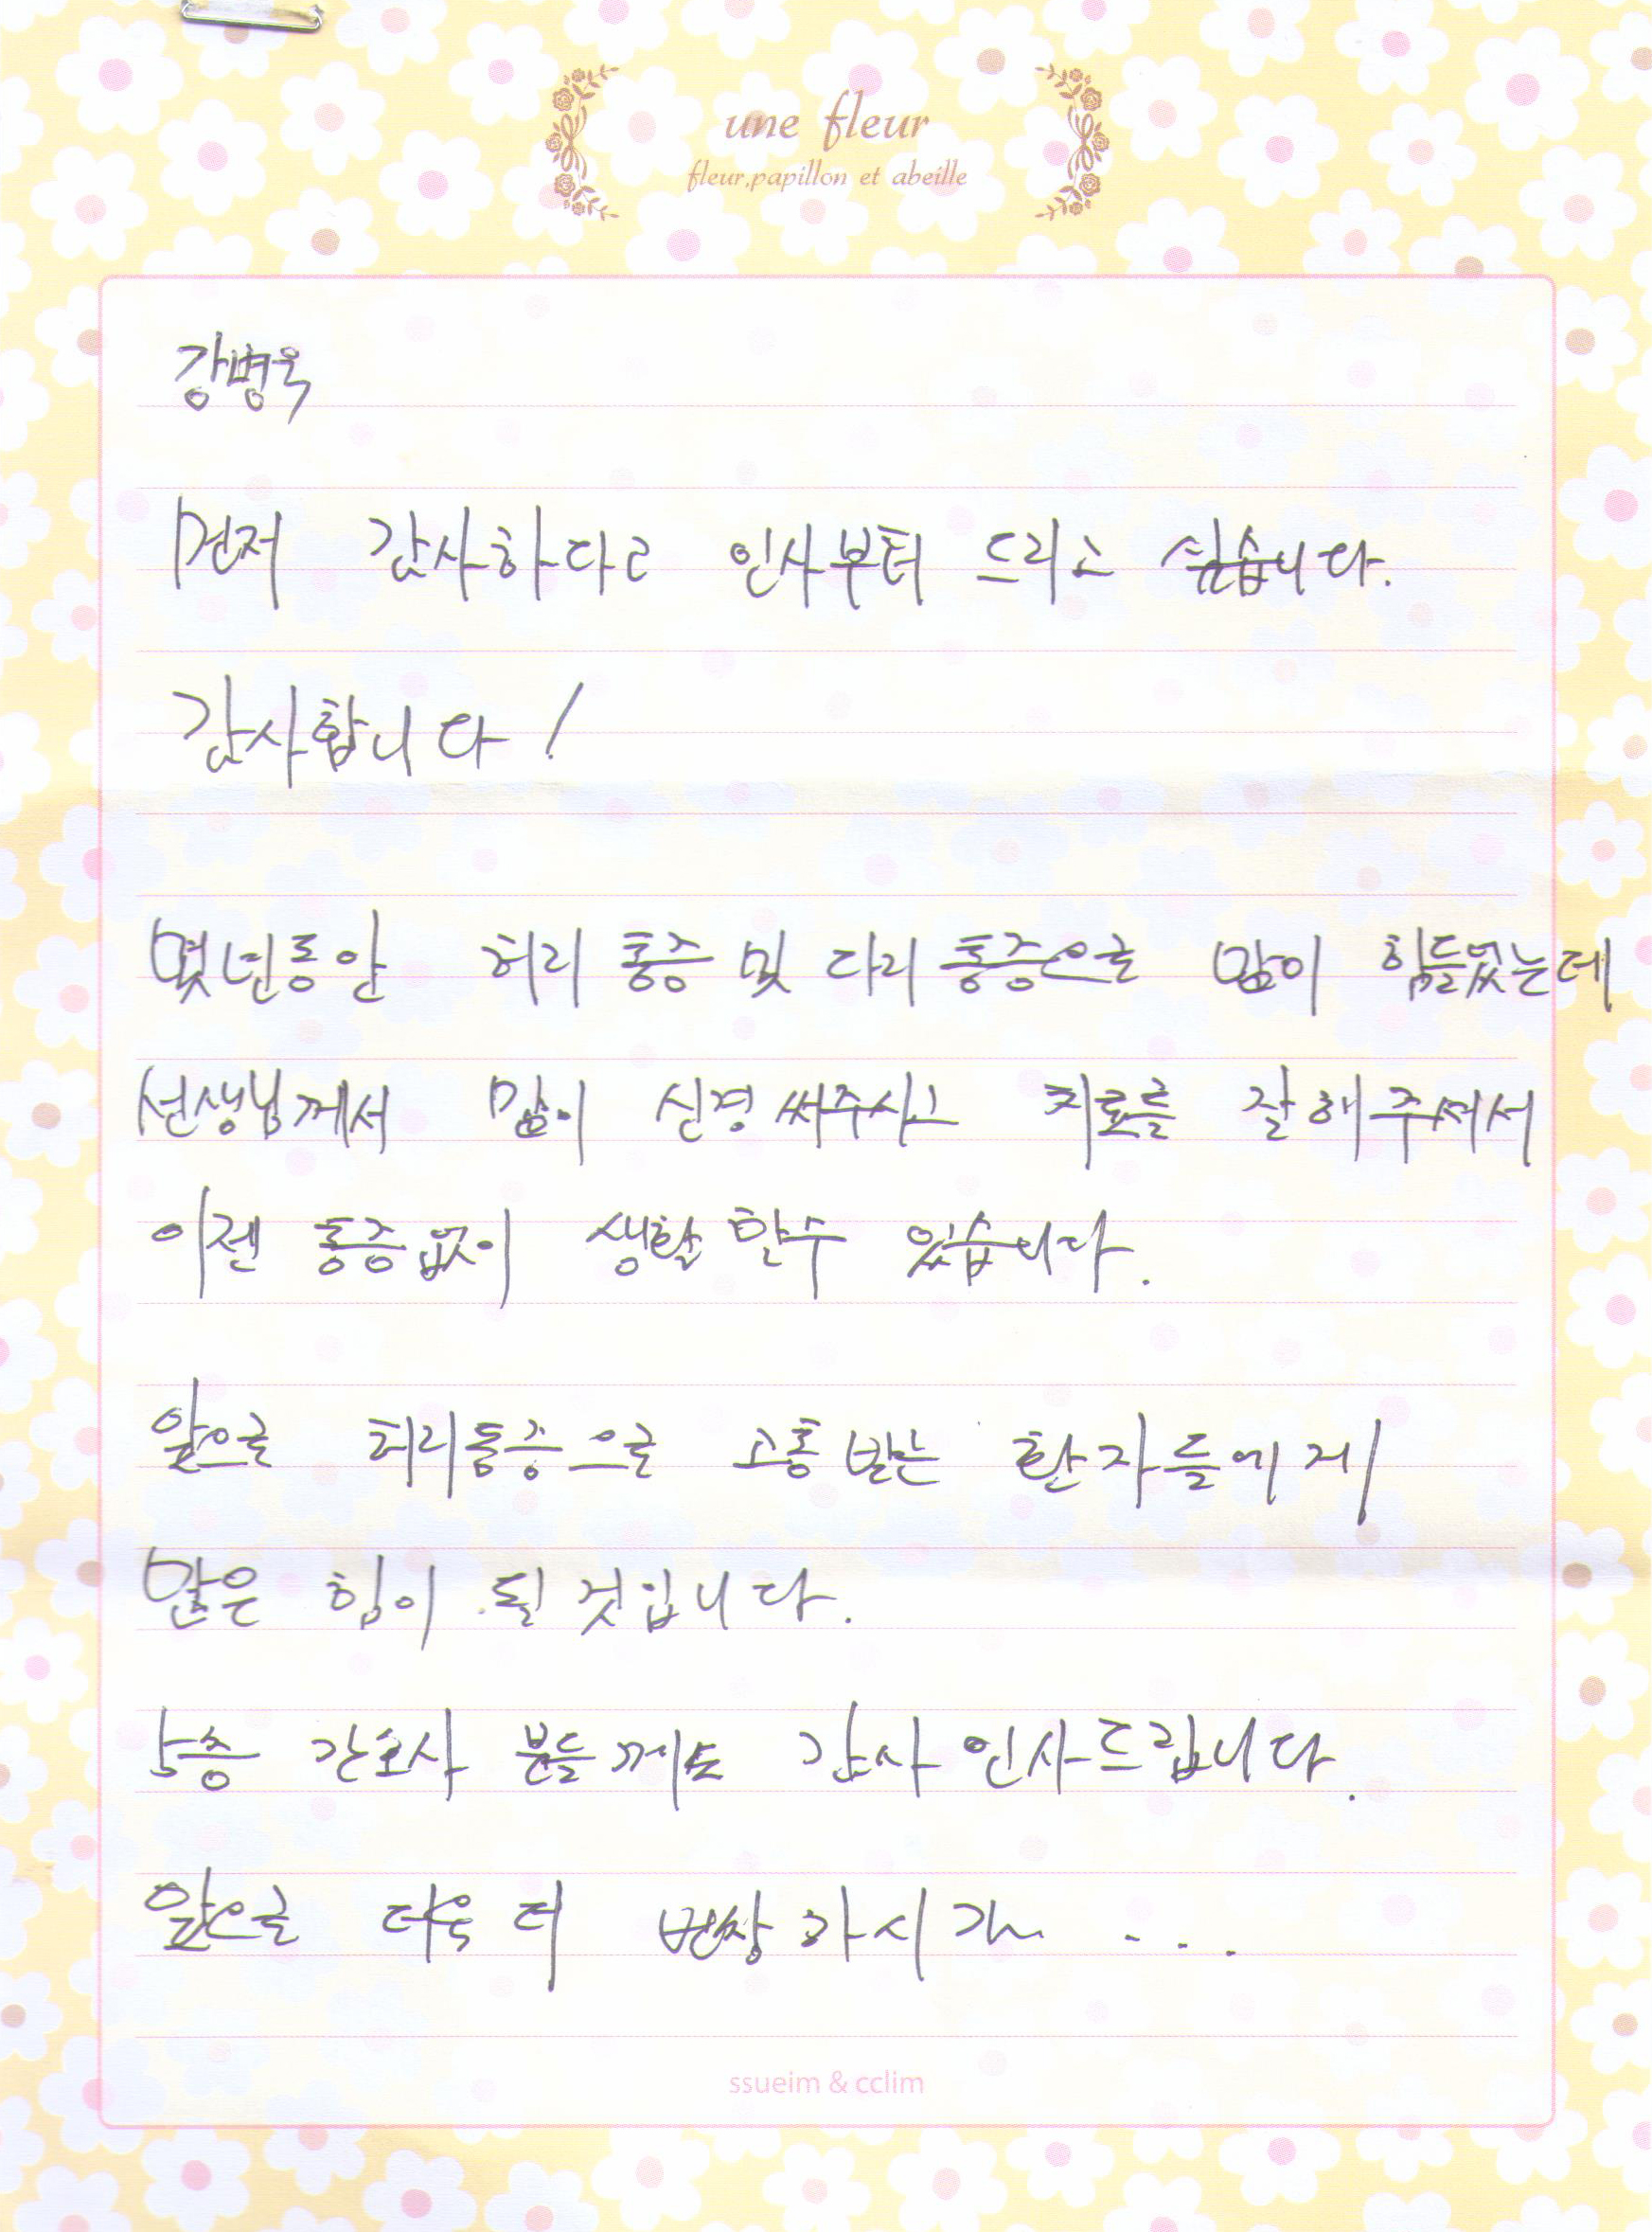 une fleur
fleur,papillon et abeille
강병욱
먼저 감사하다고 인사부터 드리고 싶습니다.
감사합니다!
몇년동안 허리 통증 및 다리 통증으로 많이 힘들었는데
선생님께서 많이 신경써주시고 치료를 잘해주셔서
이젠 통증없이 생활 할수 있습니다.
앞으로 허리통증으로 고통 받는 환자들에게
많은 힘이 될 것입니다.
5층 간호사 분들께도 감사 인사드립니다.
앞으로 더욱 더 번창하시길 ....
ssueim & cclim